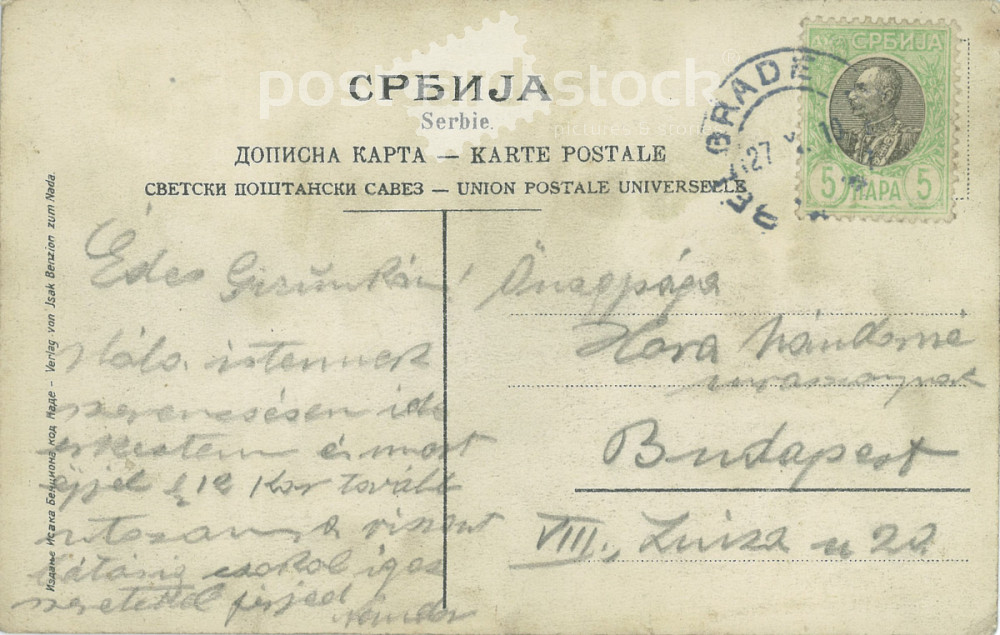 СРБИЈА
Serbie.
ДОПИСНА КАРТА — KARTE POSTALE
СВЕТСКИ ПОШТАНСКИ САВЕЗ — UNION POSTALE UNIVERSELLE
postcardstock
pictures & stories
СРБИЈА
5 ПАРА 5
BELGRADE
27
Издање Исака Бенциона код Наде - Verlag von Isak Benzion zum Nada.
Édes Gizunkám!
Hála istennek
szerencsésen ide
érkeztem és most
éjjel ½ 12 kor tovább
utazom, a viszont
látásig csókol igaz
szeretettel férjed
Nándor
Őnagysága
Hora Nándorné
úrasszonynak
Budapest
VIII., Luiza u 22.